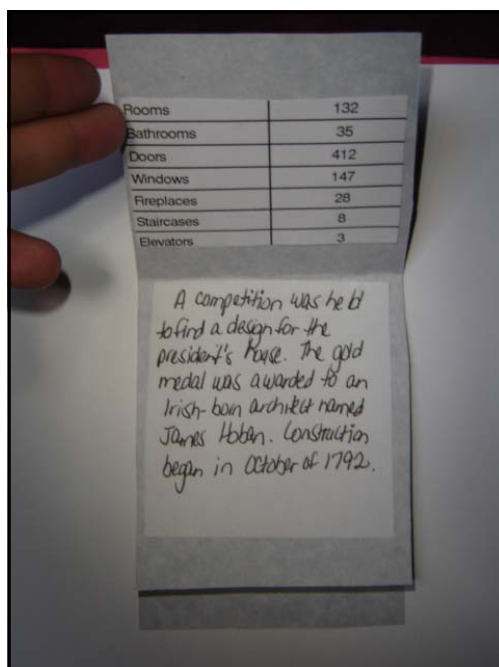 Rooms 132
Bathrooms 35
Doors 412
Windows 147
Fireplaces 28
Staircases 8
Elevators 3
A competition was held
to find a design for the
president's house. The gold
medal was awarded to an
Irish-born architect named
James Hoban. Construction
began in October of 1792.